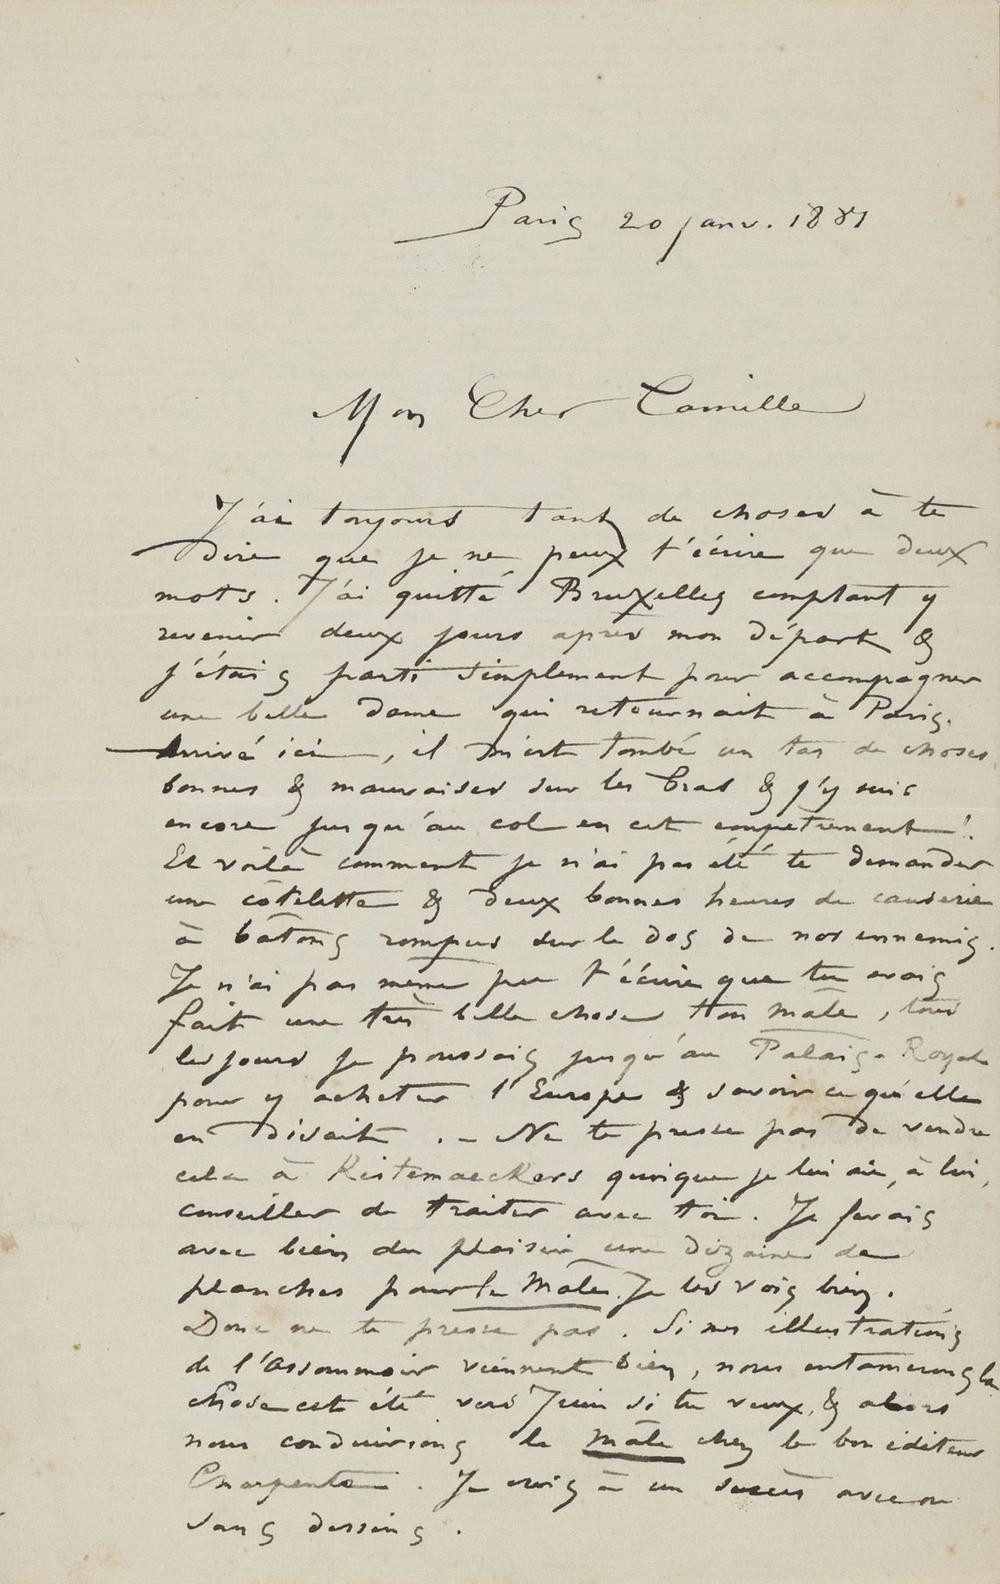 Paris 20 janv. 1881
Mon Cher Camille
J'ai toujours tant de choses à te
dire que je ne peux t'écrire que deux
mots. J'ai quitté Bruxelles comptant y
revenir deux jours après mon départ &
j'étais parti simplement pour accompagner
une belle dame qui retournait à Paris.
Arrivé ici, il m'est tombé un tas de choses
bonnes & mauvaises sur les bras & j'y suis
encore jusqu'au col en cet empetrement!
Et voilà comment je n'ai pas été te demander
une côtelette & deux bonnes heures de causerie
à bâtons rompus sur le dos de nos ennemis.
Je n'ai pas meme pu t'écrire que tu avais
fait une très belle chose ton mâle, tous
les jours je poussais jusqu'au Palais-Royal
pour y acheter l'Europe & savoir ce qu'elle
en disait. - Ne te presse pas de vendre
cela à Kistemaeckers quoique je lui aie, à lui,
conseiller de traiter avec toi. Je ferais
avec bien du plaisir une dizaine de
planches pour le Mâle. Je les vois bien.
Donc ne te presse pas. Si mes illustrations
de l'Assommoir viennent bien, nous entamerons la
chose cet été vers Juin si tu veux, & alors
nous conduirons le Mâle chez le bon éditeur
Charpentier. Je crois à un succès avec ou
sans dessins.